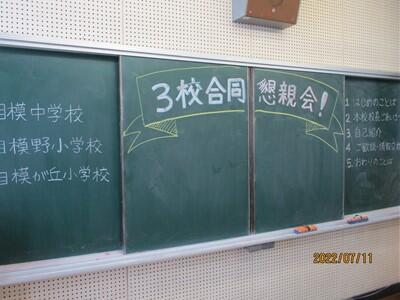 3校合同懇親会!
相模中学校
相模野小学校
相模が丘小学校
1. はじめのことば
2. 本校校長ごあいさつ
3. 自己紹介
4. ご歓談・情報交換
5. おわりのことば
2022/07/11